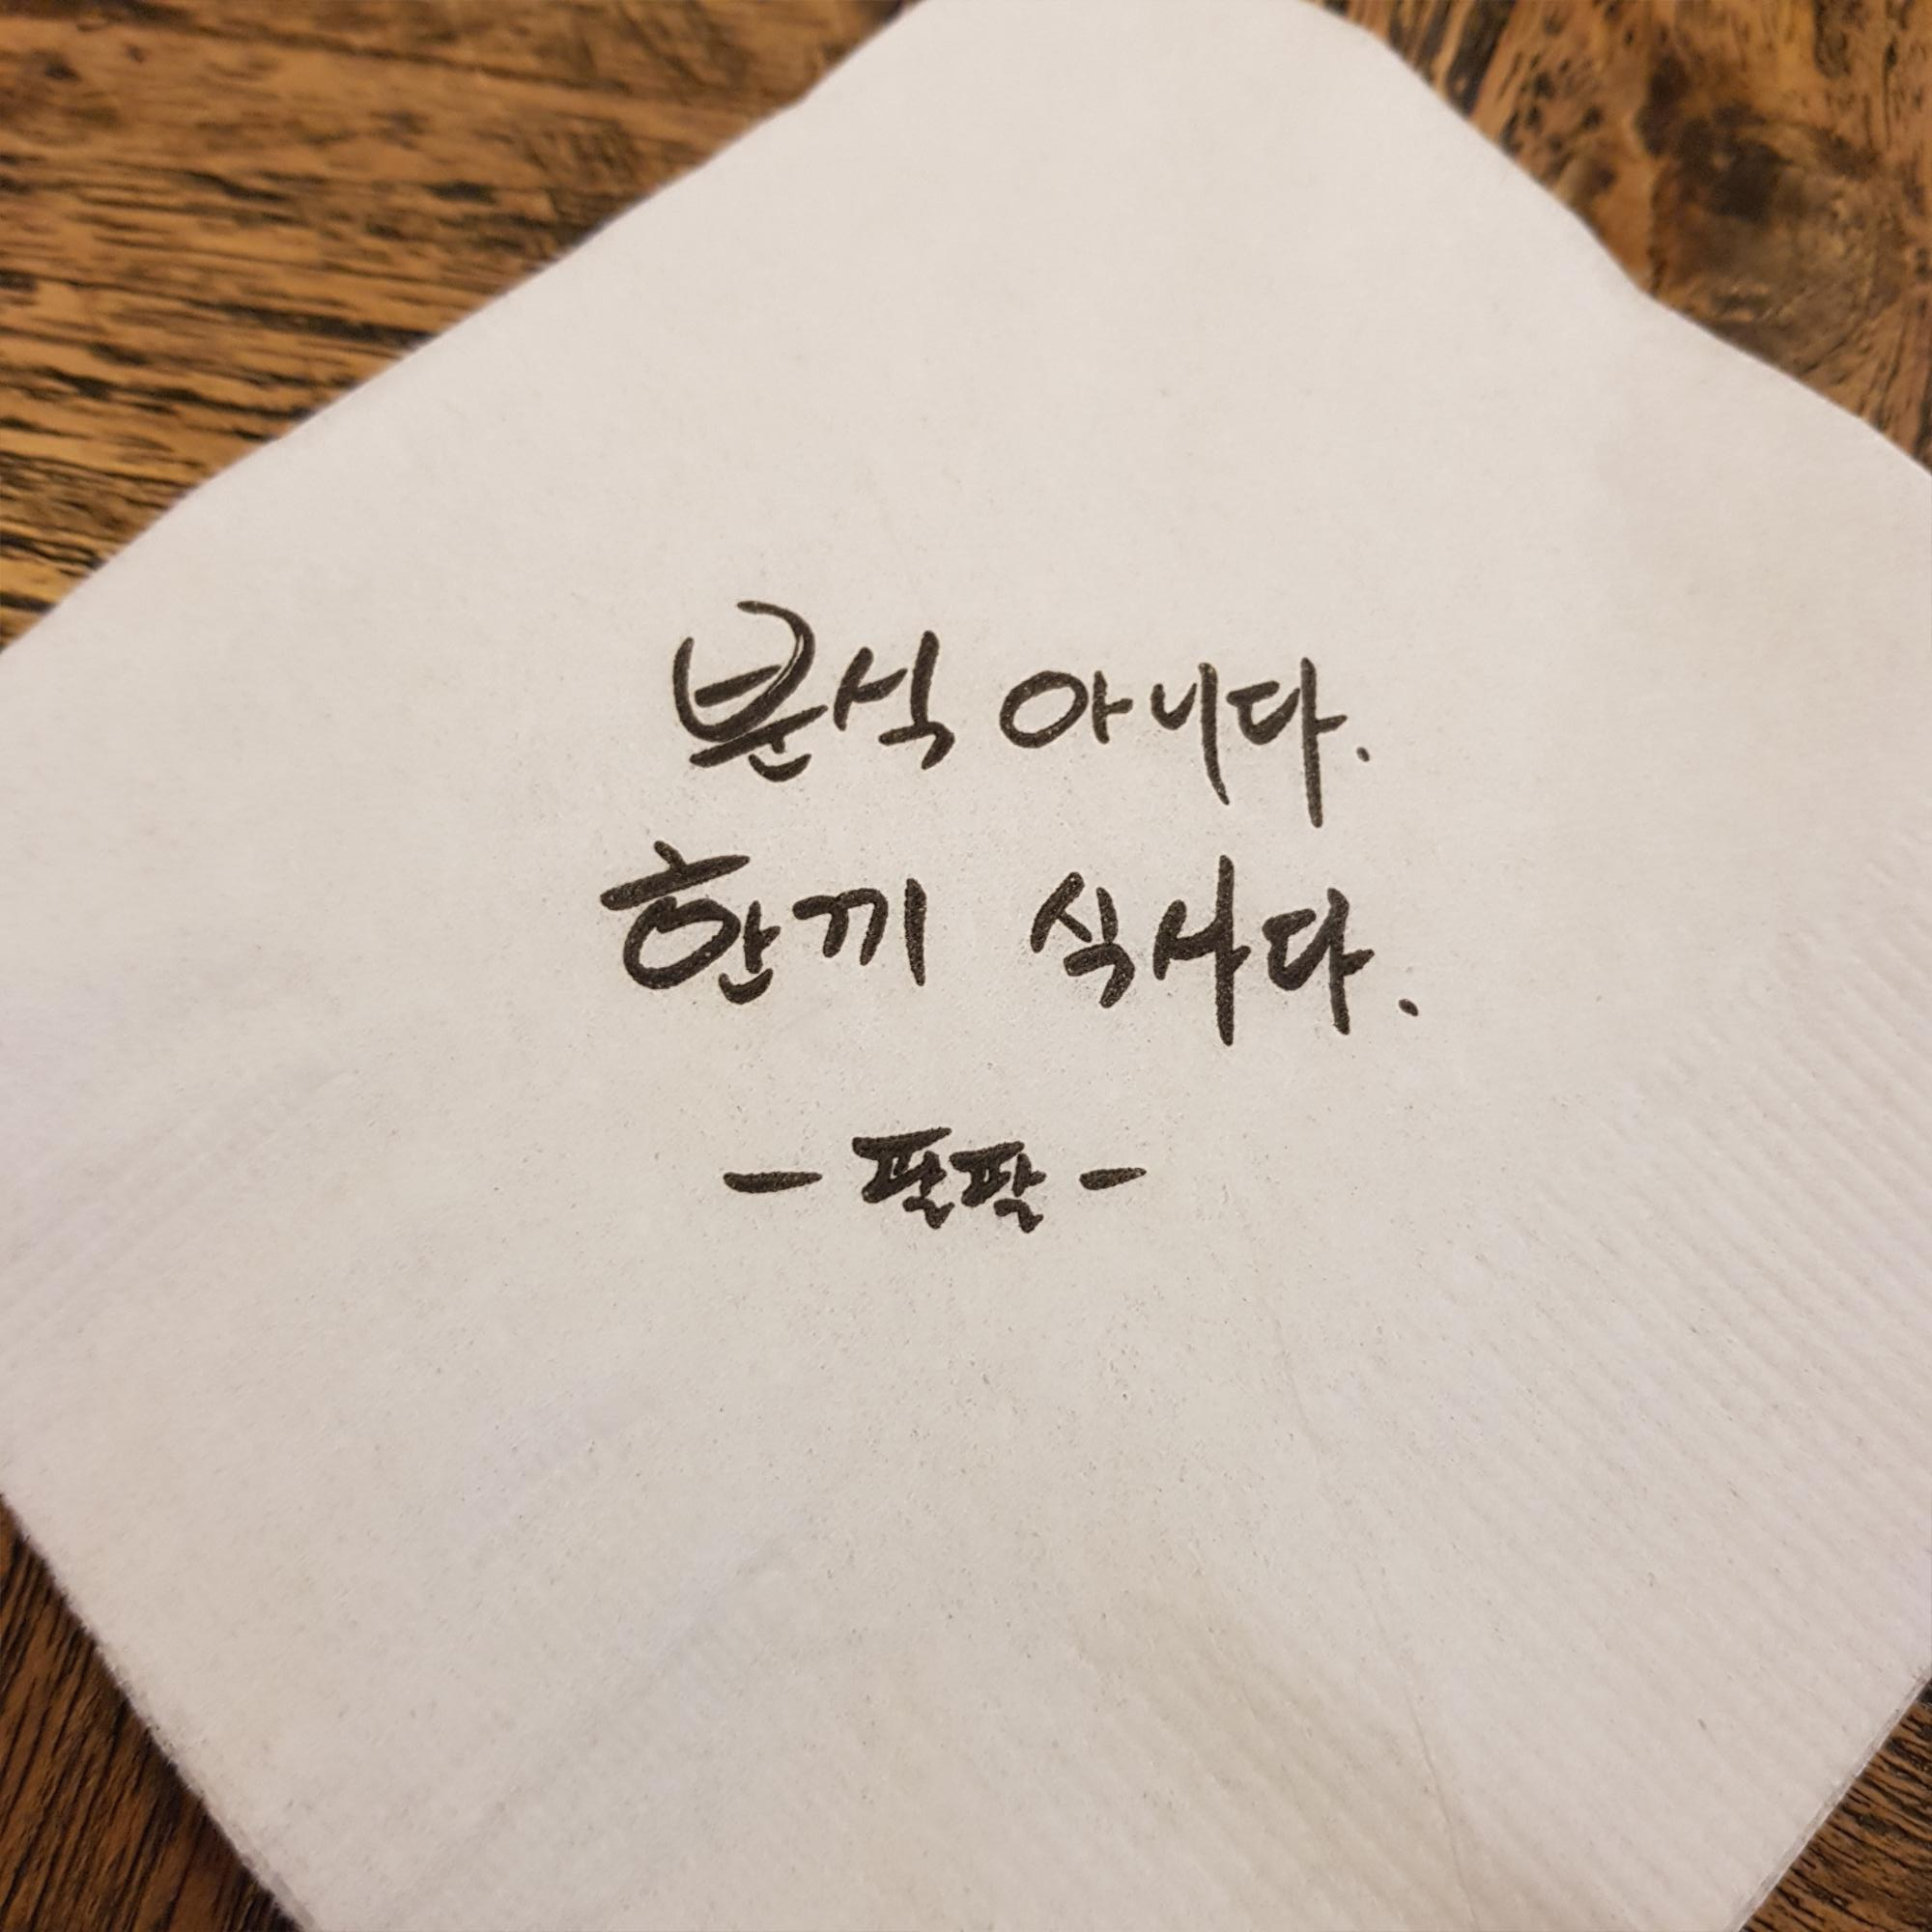 분식 아니다.
한끼 식사다.
- 팔팔 -